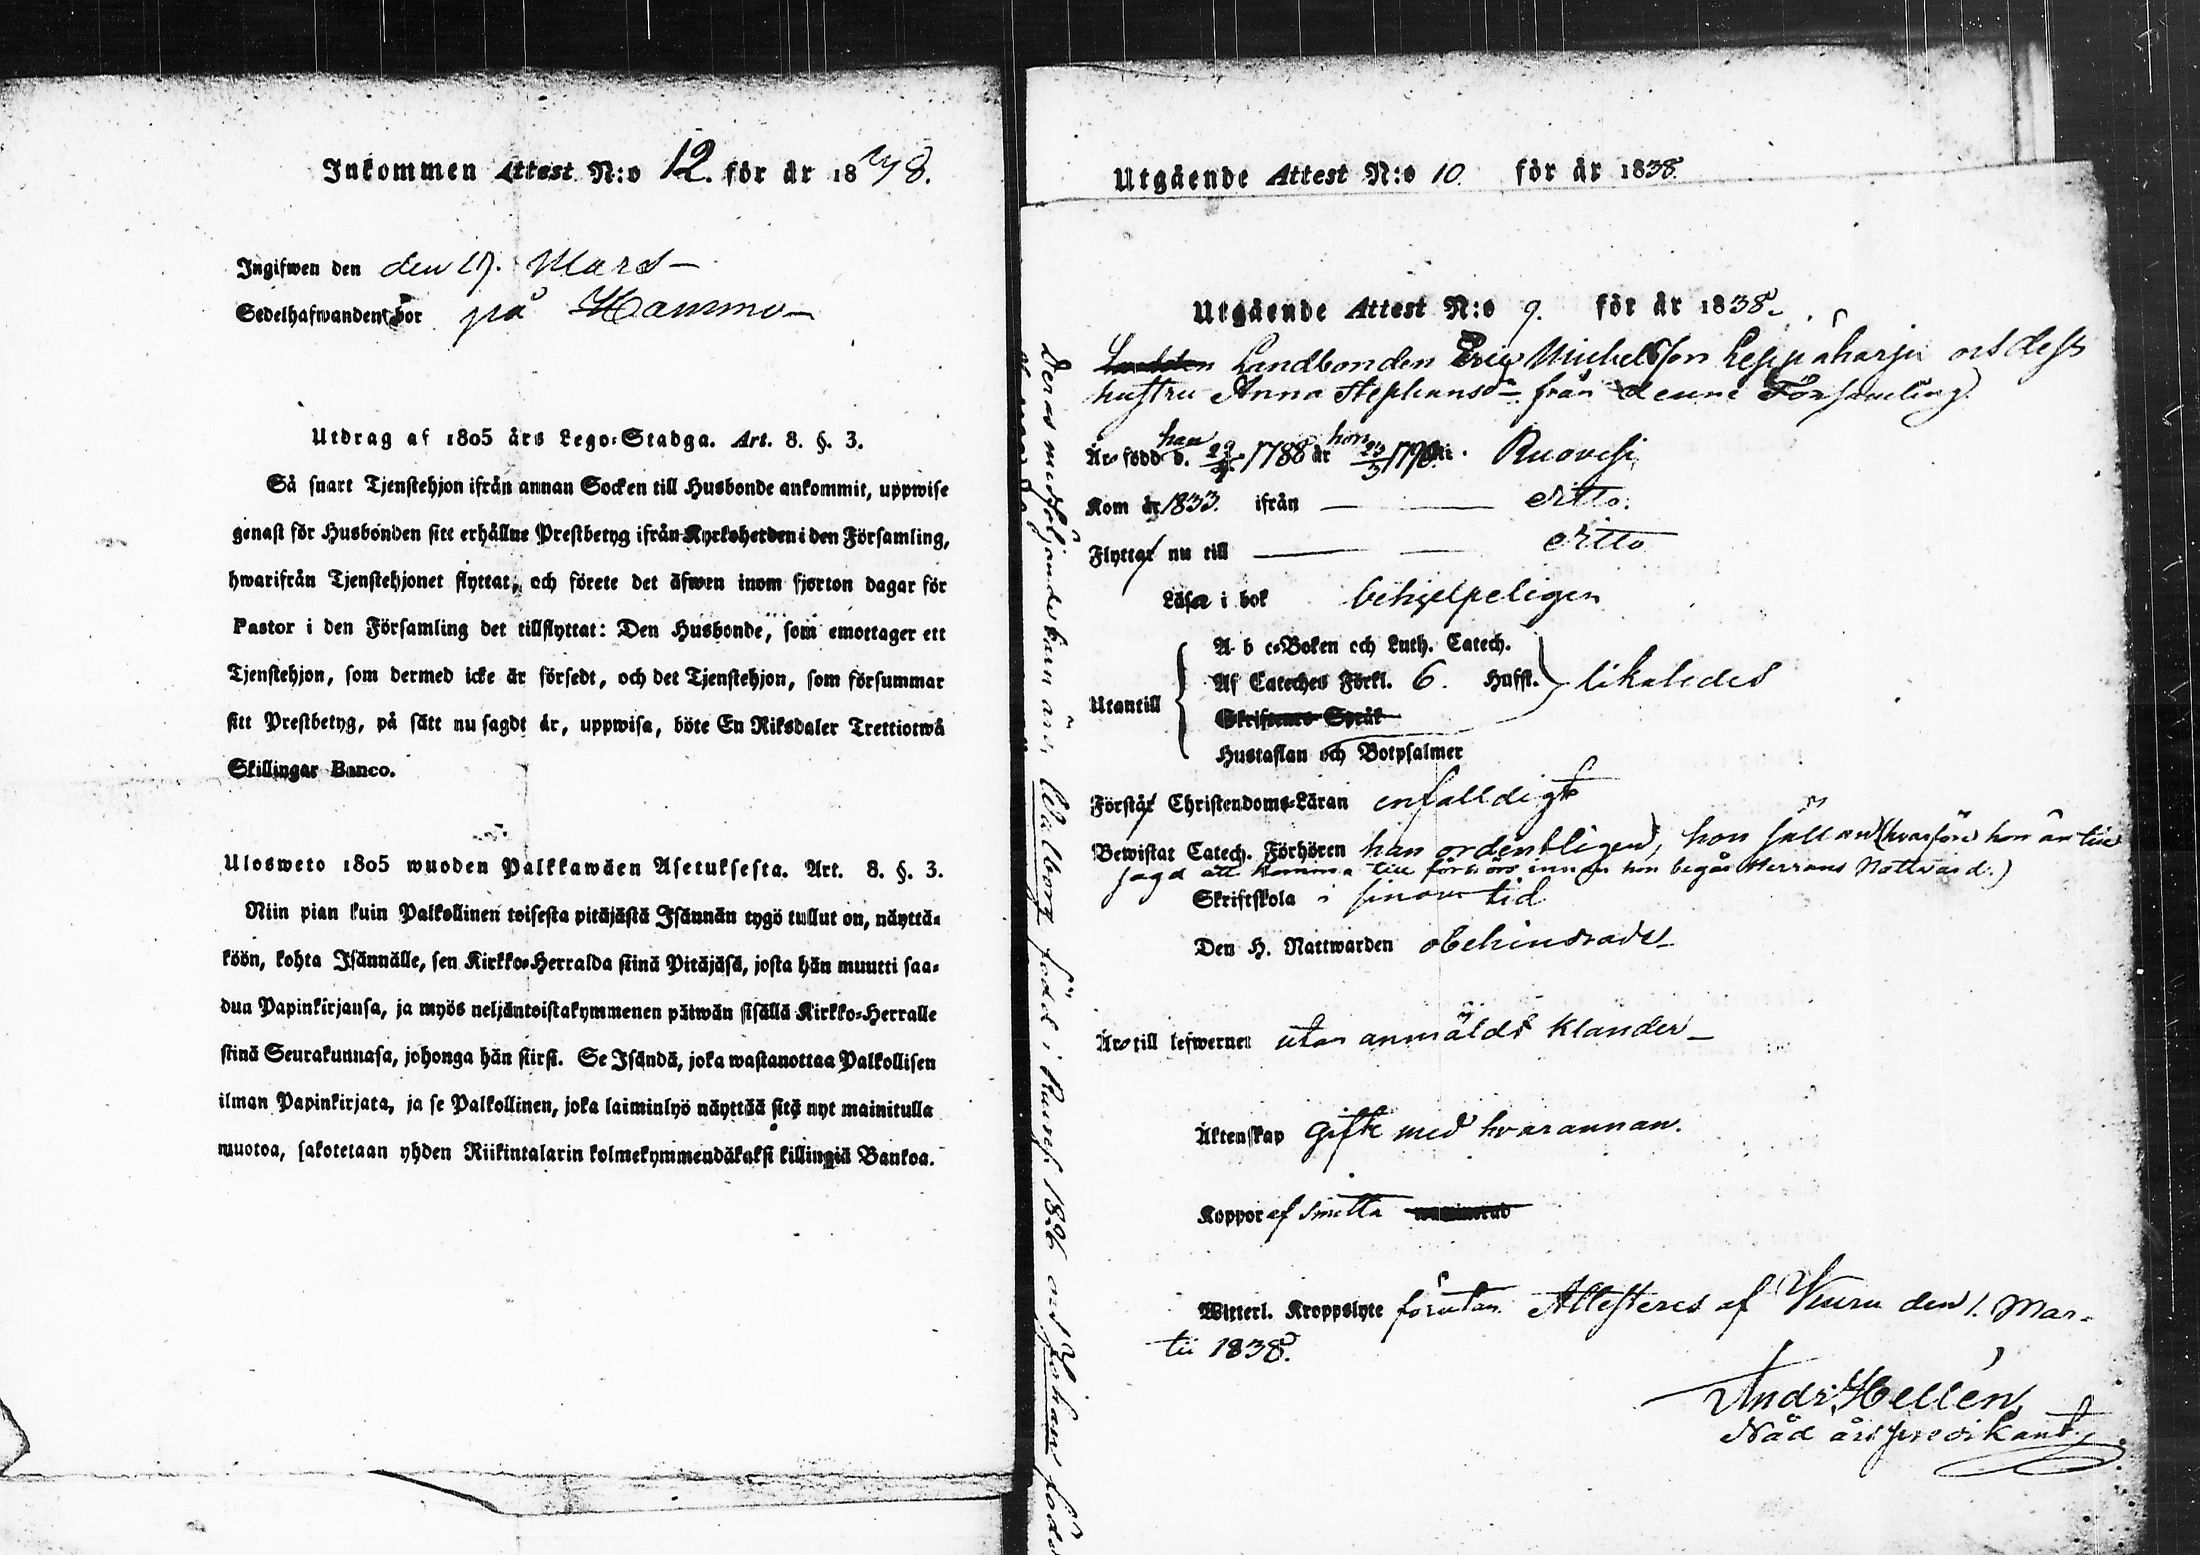 Inkommen Attest N:o 12. för år 1838.
Ingifwen den den 17. Mars
Sedelhafwanden bor på
Utdrag af 1805 års Lego-Stadga. Art. 8. §. 3.
Så snart Tjenstehjon ifrån annan Socken till Husbonde ankommit, uppwise
genast för Husbonden sitt erhållne Prestbetyg ifrån Kyrkoherden i den Församling,
hwarifrån Tjenstehjonet flyttat, och förete det äfwen inom fjorton dagar för
Pastor i den Församling det tillflyttat: Den Husbonde, som emottager ett
Tjenstehjon, som dermed icke är försedt, och det Tjenstehjon, som försummar
sitt Prestbetyg, på sätt nu sagdt är, uppwisa, böte En Riksdaler Trettiotwå
Skillingar Banco.
Ulosweto 1805 wuoden Palkkawäen Asetuksesta. Art. 8. §. 3.
Niin pian kuin Palkollinen toisesta pitäjästä Isännän tygö tullut on, näyttä-
köön, kohta Isännälle, sen Kirkko-Herralda siinä Pitäjäsä, josta hän muutti saa-
dun Papinkirjansa, ja myös neljäntoistakymmenen päiwän sisällä Kirkko-Herralle
siinä Seurakunnasa, johonga hän siirsi. Se Isändä, joka wastanottaa Palkollisen
ilman Papinkirjata, ja se Palkollinen, joka laiminlyö näyttää sitä nyt mainitulla
muotoa, sakotetaan yhden Riikintalarin kolmekymmendäkaksi killingiä Bankoa.
Utgående Attest N:o 10. för år 1838.
Utgående Attest N:o 9. för år 1838.
Landbonden Eric Michelsson Leppäharju och dess
hustru Anna Stephansdr från denne Församling.
Äro född d. han 1788 år hon 1790 i. Ruovesi
Kom år 1833. ifrån ditto.
Flyttar nu till ditto
Läsa i bok behjelpeligen
Utantill
A b c-Boken och Luth. Catech.
Af Cateches Förkl. 6. Hufst. likaledes
Skriftenes Språk
Hustaflan och Botpsalmer
Förstår Christendoms-Läran enfalldigt
Bewistat Catech. Förhören han ordentligen, hon sällan (hvarföre hon är till
sagd att komma till förhörs innan hon begår Herrans Nattvard.)
Skriftskola i sinom tid
Den H. Nattwarden obehindrade
Äro till lefwernet utan anmäldt klander
Äktenskap gifte med hvarannan.
Koppor af smitta
Witterl. Kroppslyte förutan. Attesteres af Kuru den 1. Mar-
tii 1838.
Andr. Hellén,
Nåd års predikant.
Deras medföljande barn äro, Wallborg född i Ruovesi 1826 och Johans född